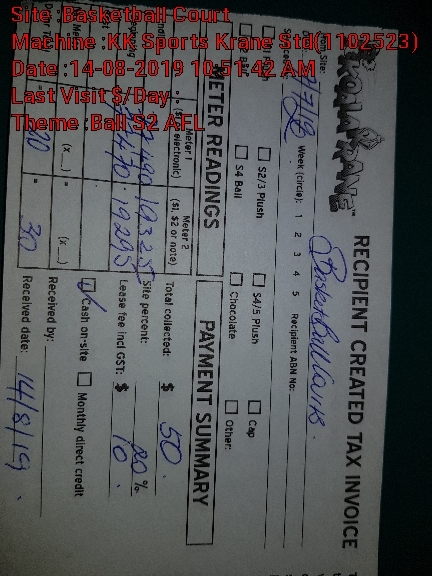 Site: Basketball Court
Machine :KK Sports Krane Std(1102523)
Date :14-08-2019 10:51:42 AM
Last Visit $/Day
Theme :Ball S2 AFL
KOALA KRANE
RECIPIENT CREATED TAX INVOICE
Site:
Basketball
Week (circle): 1 2 3 4 5 Recipient ABN No:
S2/3 Plush
S4/5 Plush
Cap
S4 Ball
Chocolate
Other:
METER READINGS
PAYMENT SUMMARY
Meter 1
Meter 2
electronic)
($1, $2 or note)
Total collected: $ 50.
19325
Site percent: 20 %
19295
Lease fee incl GST: $ 10.
Cash on-site
Monthly direct credit
(x )
(x )
Received by:
30
Received date: 14/8/19.